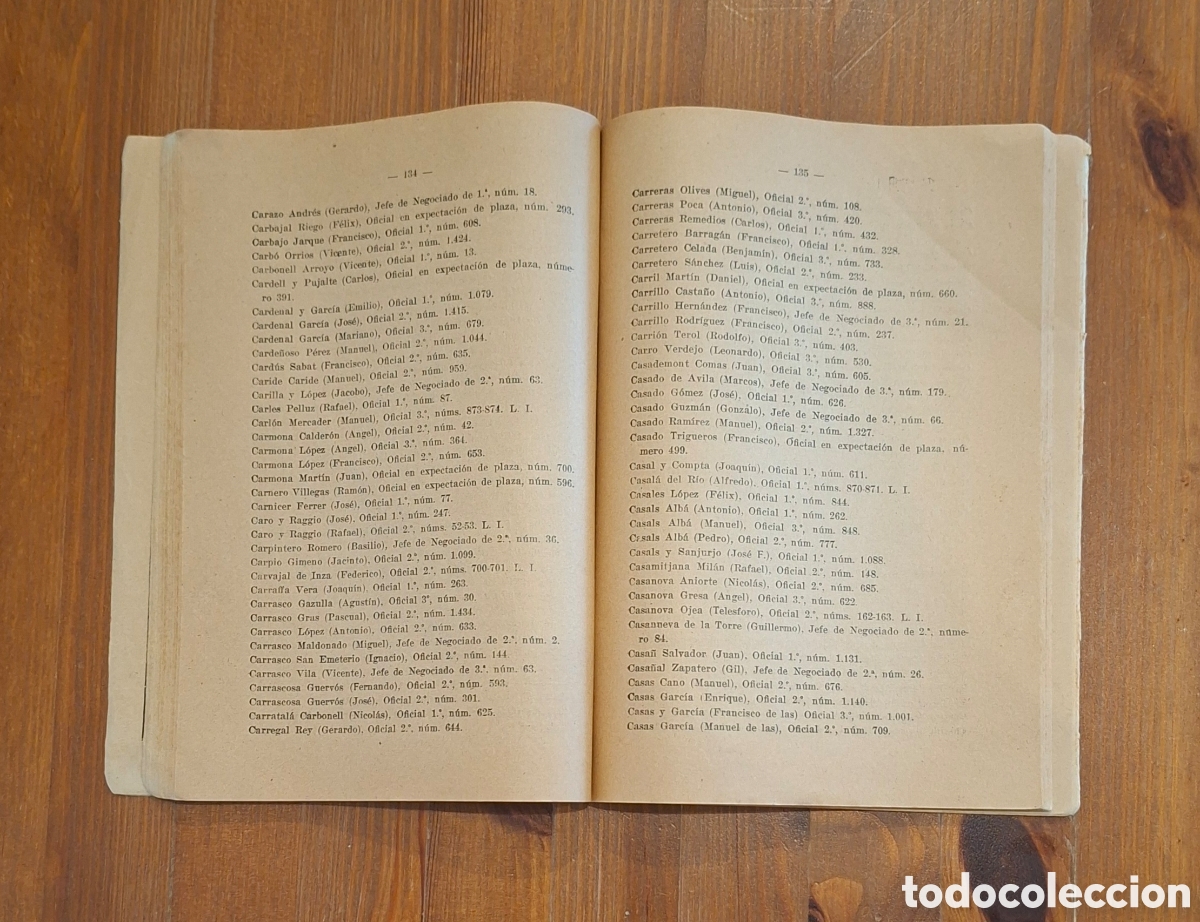 — 134 —
Carazo Andrés (Gerardo), Jefe de Negociado de 1.ª, núm. 18.
Carbajal Riego (Félix), Oficial en expectación de plaza, núm. 293.
Carbajo Jarque (Francisco), Oficial 1.ª, núm. 608.
Carbó Orrios (Vicente), Oficial 2.ª, núm. 1.424.
Carbonell Arroyo (Vicente), Oficial 1.ª, núm. 13.
Cardell y Pujalte (Carlos), Oficial en expectación de plaza, núme-
ro 391.
Cardenal y García (Emilio), Oficial 1.ª, núm. 1.079.
Cardenal García (José), Oficial 2.ª, núm. 1.415.
Cardenal García (Mariano), Oficial 3.ª, núm. 679.
Cardeñoso Pérez (Manuel), Oficial 2.ª, núm. 1.044.
Cardús Sabat (Francisco), Oficial 2.ª, núm. 635.
Caride Caride (Manuel), Oficial 2.ª, núm. 959.
Carilla y López (Jacobo), Jefe de Negociado de 2.ª, núm. 63.
Carles Pelluz (Rafael), Oficial 1.ª, núm. 87.
Carlón Mercader (Manuel), Oficial 3.ª, núms. 873-874. L. I.
Carmona Calderón (Angel), Oficial 2.ª, núm. 42.
Carmona López (Angel), Oficial 3.ª, núm. 364.
Carmona López (Francisco), Oficial 2.ª, núm. 653.
Carmona Martín (Juan), Oficial en expectación de plaza, núm. 700.
Carnero Villegas (Ramón), Oficial en expectación de plaza, núm. 596.
Carnicer Ferrer (José), Oficial 1.ª, núm. 77.
Caro y Raggio (José), Oficial 1.ª, núm. 247.
Caro y Raggio (Rafael), Oficial 2.ª, núms. 52-53. L. I.
Carpintero Romero (Basilio), Jefe de Negociado de 2.ª, núm. 36.
Carpio Gimeno (Jacinto), Oficial 2.ª, núm. 1.099.
Carvajal de Inza (Federico), Oficial 2.ª, núms. 700-701. L. I.
Carraffa Vera (Joaquín), Oficial 1.ª, núm. 263.
Carrasco Gazulla (Agustín), Oficial 3ª, núm. 30.
Carrasco Gras (Pascual), Oficial 2.ª, núm. 1.434.
Carrasco López (Antonio), Oficial 2.ª, núm. 633.
Carrasco Maldonado (Miguel), Jefe de Negociado de 2.ª, núm. 2.
Carrasco San Emeterio (Ignacio), Oficial 2.ª, núm. 144.
Carrasco Vila (Vicente), Jefe de Negociado de 3.ª, núm. 63.
Carrascosa Guervós (Fernando), Oficial 2.ª, núm. 593.
Carrascosa Guervós (José), Oficial 2.ª, núm. 301.
Carratalá Carbonell (Nicolás), Oficial 1.ª, núm. 625.
Carregal Rey (Gerardo), Oficial 2.ª, núm. 644.
— 135 —
Carreras Olives (Miguel), Oficial 2.ª, núm. 108.
Carreras Poca (Antonio), Oficial 3.ª, núm. 420.
Carreras Remedios (Carlos), Oficial 1.ª, núm. 432.
Carretero Barragán (Francisco), Oficial 1.ª, núm. 328.
Carretero Celada (Benjamín), Oficial 3.ª, núm. 733.
Carretero Sánchez (Luis), Oficial 2.ª, núm. 233.
Carril Martín (Daniel), Oficial en expectación de plaza, núm. 660.
Carrillo Castaño (Antonio), Oficial 3.ª, núm. 888.
Carrillo Hernández (Francisco), Jefe de Negociado de 3.ª, núm. 21.
Carrillo Rodríguez (Francisco), Oficial 2.ª, núm. 237.
Carrión Terol (Rodolfo), Oficial 3.ª, núm. 403.
Carro Verdejo (Leonardo), Oficial 3.ª, núm. 530.
Casademont Comas (Juan), Oficial 3.ª, núm. 605.
Casado de Avila (Marcos), Jefe de Negociado de 3.ª, núm. 179.
Casado Gómez (José), Oficial 1.ª, núm. 626.
Casado Guzmán (Gonzálo), Jefe de Negociado de 3.ª, núm. 66.
Casado Ramírez (Manuel), Oficial 2.ª, núm. 1.327.
Casado Trigueros (Francisco), Oficial en expectación de plaza, nú-
mero 499.
Casal y Compta (Joaquín), Oficial 1.ª, núm. 611.
Casalá del Río (Alfredo), Oficial 1.ª, núms. 870-871. L. I.
Casales López (Félix), Oficial 1.ª, núm. 844.
Casals Albá (Antonio), Oficial 1.ª, núm. 262.
Casals Albá (Manuel), Oficial 3.ª, núm. 848.
Casals Albá (Pedro), Oficial 2.ª, núm. 777.
Casals y Sanjurjo (José F.), Oficial 1.ª, núm. 1.088.
Casamitjana Milán (Rafael), Oficial 2.ª, núm. 148.
Casanova Aniorte (Nicolás), Oficial 2.ª, núm. 685.
Casanova Gresa (Angel), Oficial 3.ª, núm. 622.
Casanova Ojea (Telesforo), Oficial 2.ª, núms. 162-163. L. I.
Casanneva de la Torre (Guillermo), Jefe de Negociado de 2.ª, núme-
ro 84.
Casañ Salvador (Juan), Oficial 1.ª, núm. 1.131.
Casañal Zapatero (Gil), Jefe de Negociado de 2.ª, núm. 26.
Casas Cano (Manuel), Oficial 2.ª, núm. 676.
Casas García (Enrique), Oficial 2.ª, núm. 1.140.
Casas y García (Francisco de las) Oficial 3.ª, núm. 1.001.
Casas García (Manuel de las), Oficial 2.ª, núm. 709.
todocoleccion